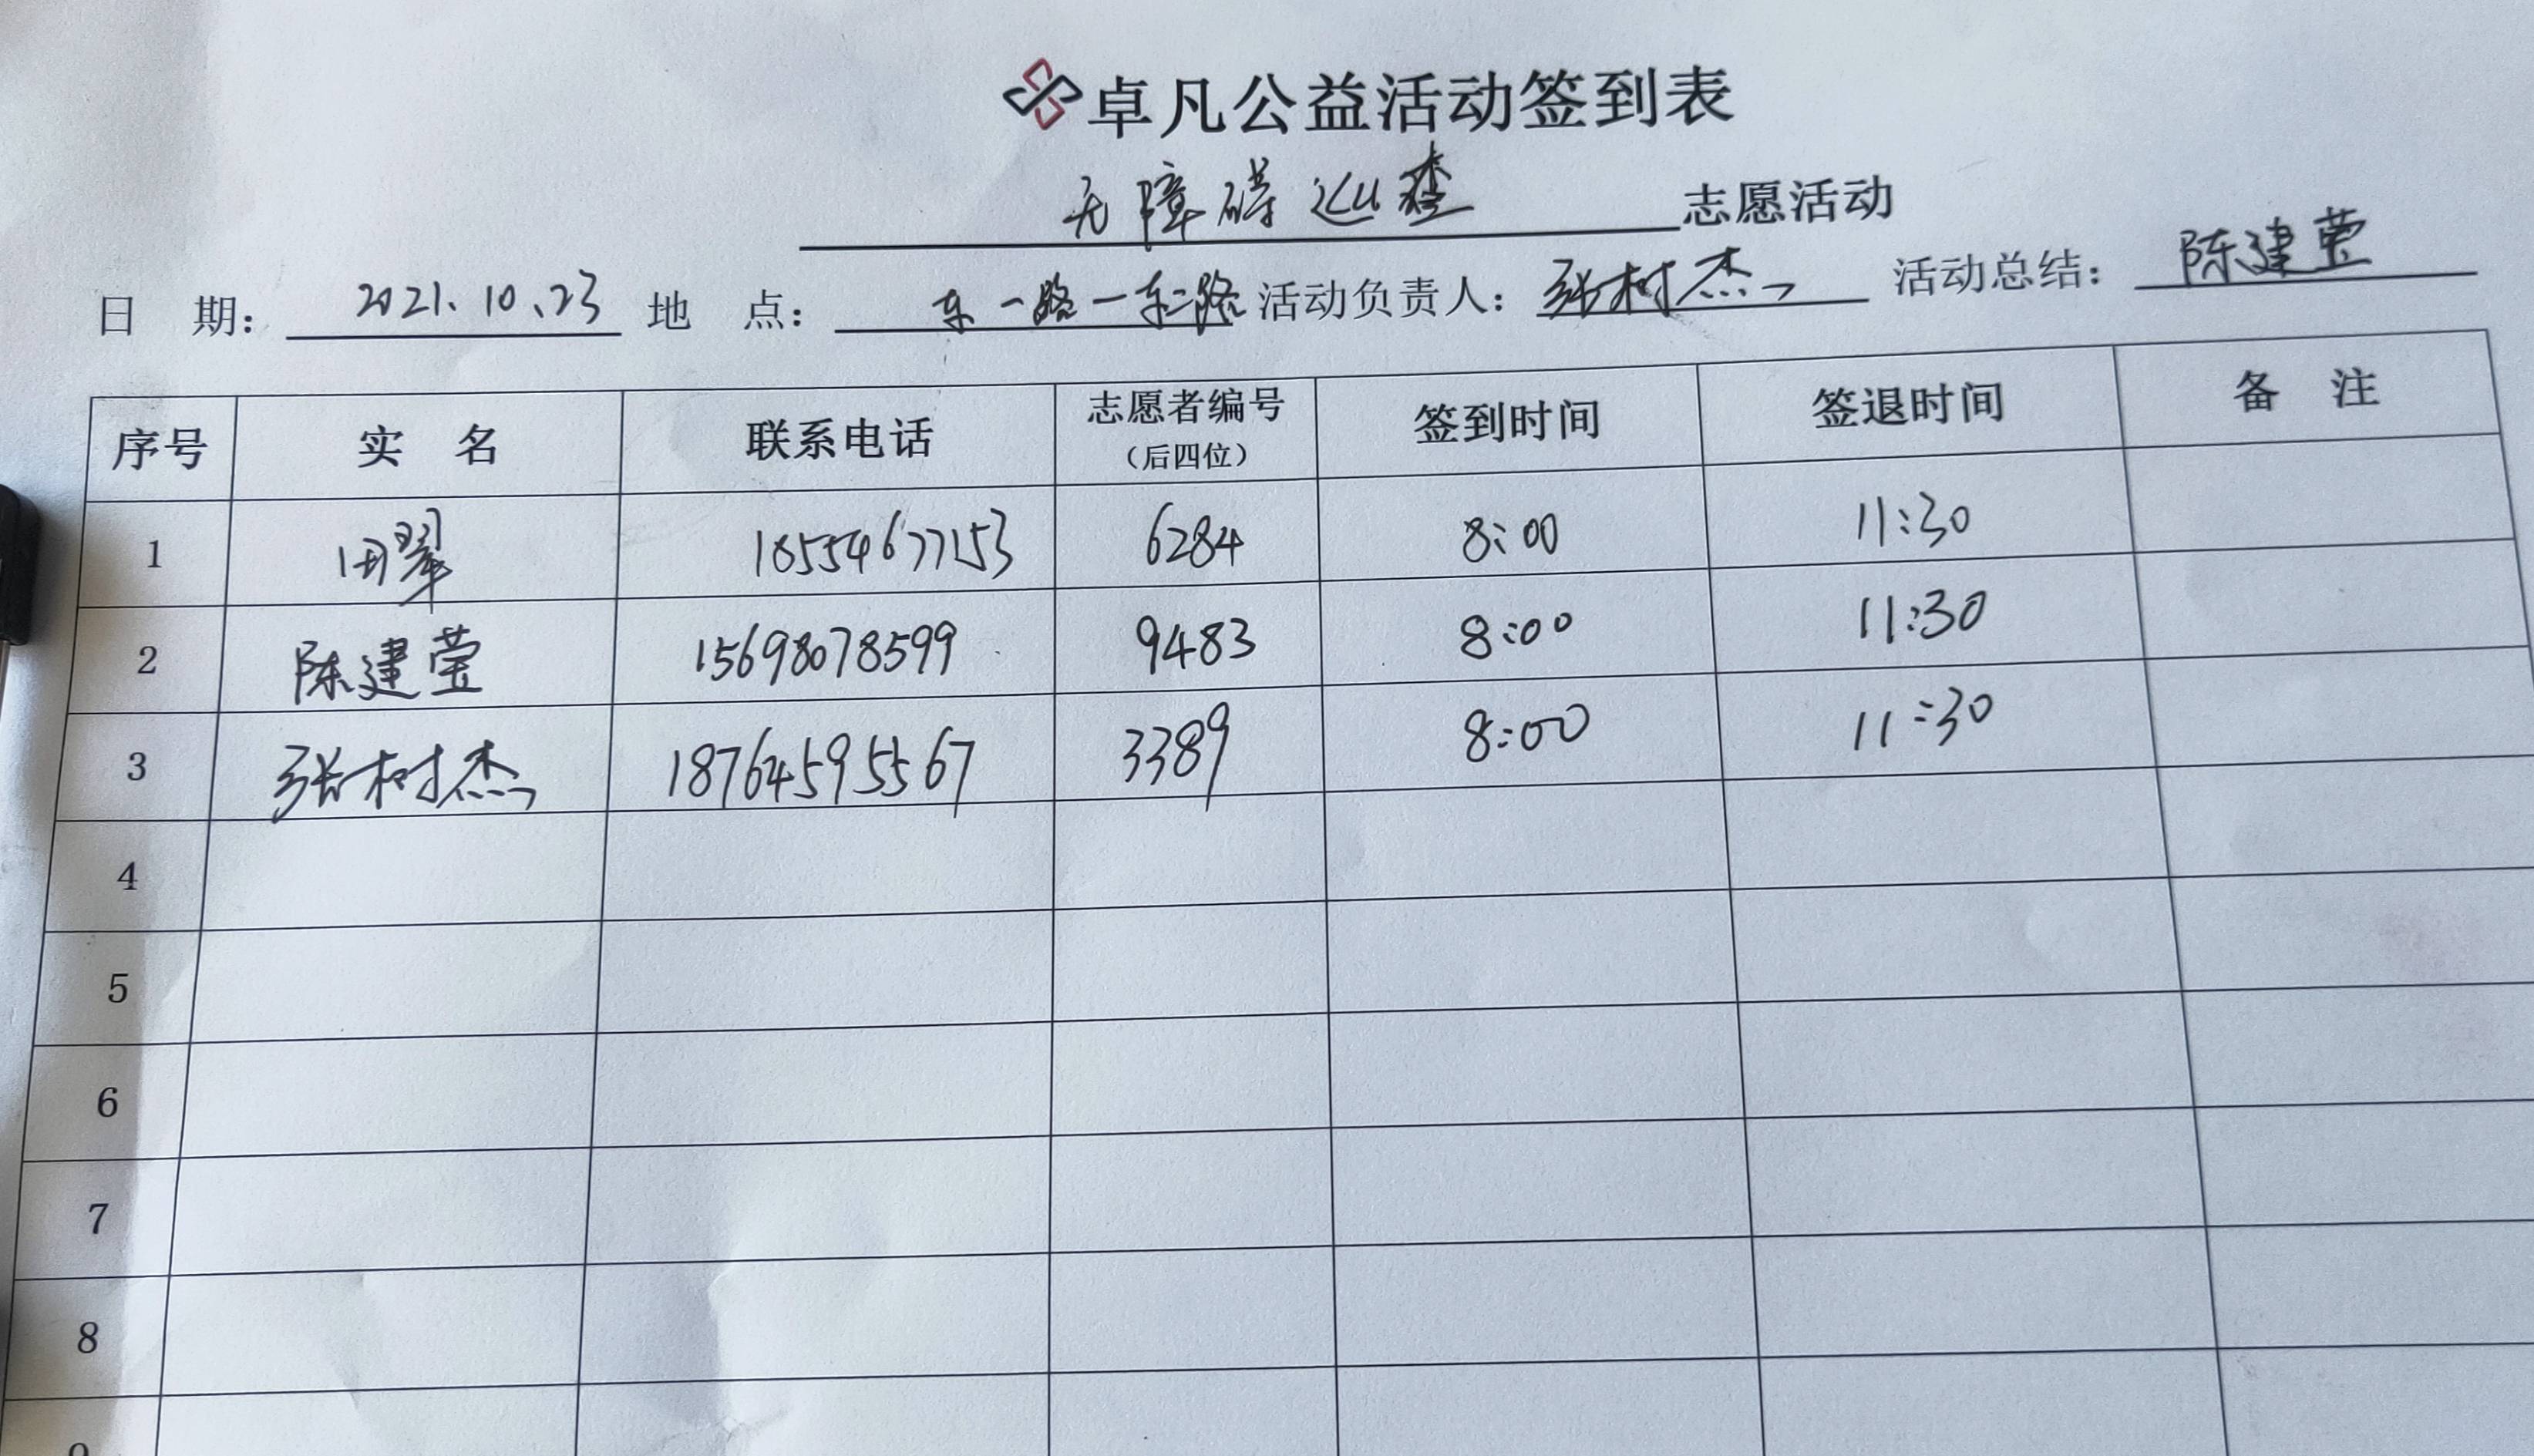 卓凡公益活动签到表
无障碍巡查 志愿活动
日 期： 2021.10.23 地 点： 东一路一东二路 活动负责人： 张树杰 活动总结： 陈建莹
序号 实 名 联系电话 志愿者编号（后四位） 签到时间 签退时间 备 注
1 田翠 18554677153 6284 8:00 11:30
2 陈建莹 15698078599 9483 8:00 11:30
3 张树杰 18764595567 3389 8:00 11:30
4
5
6
7
8